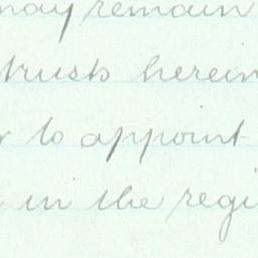 may remain
trusts herein
to appoint
in the regi